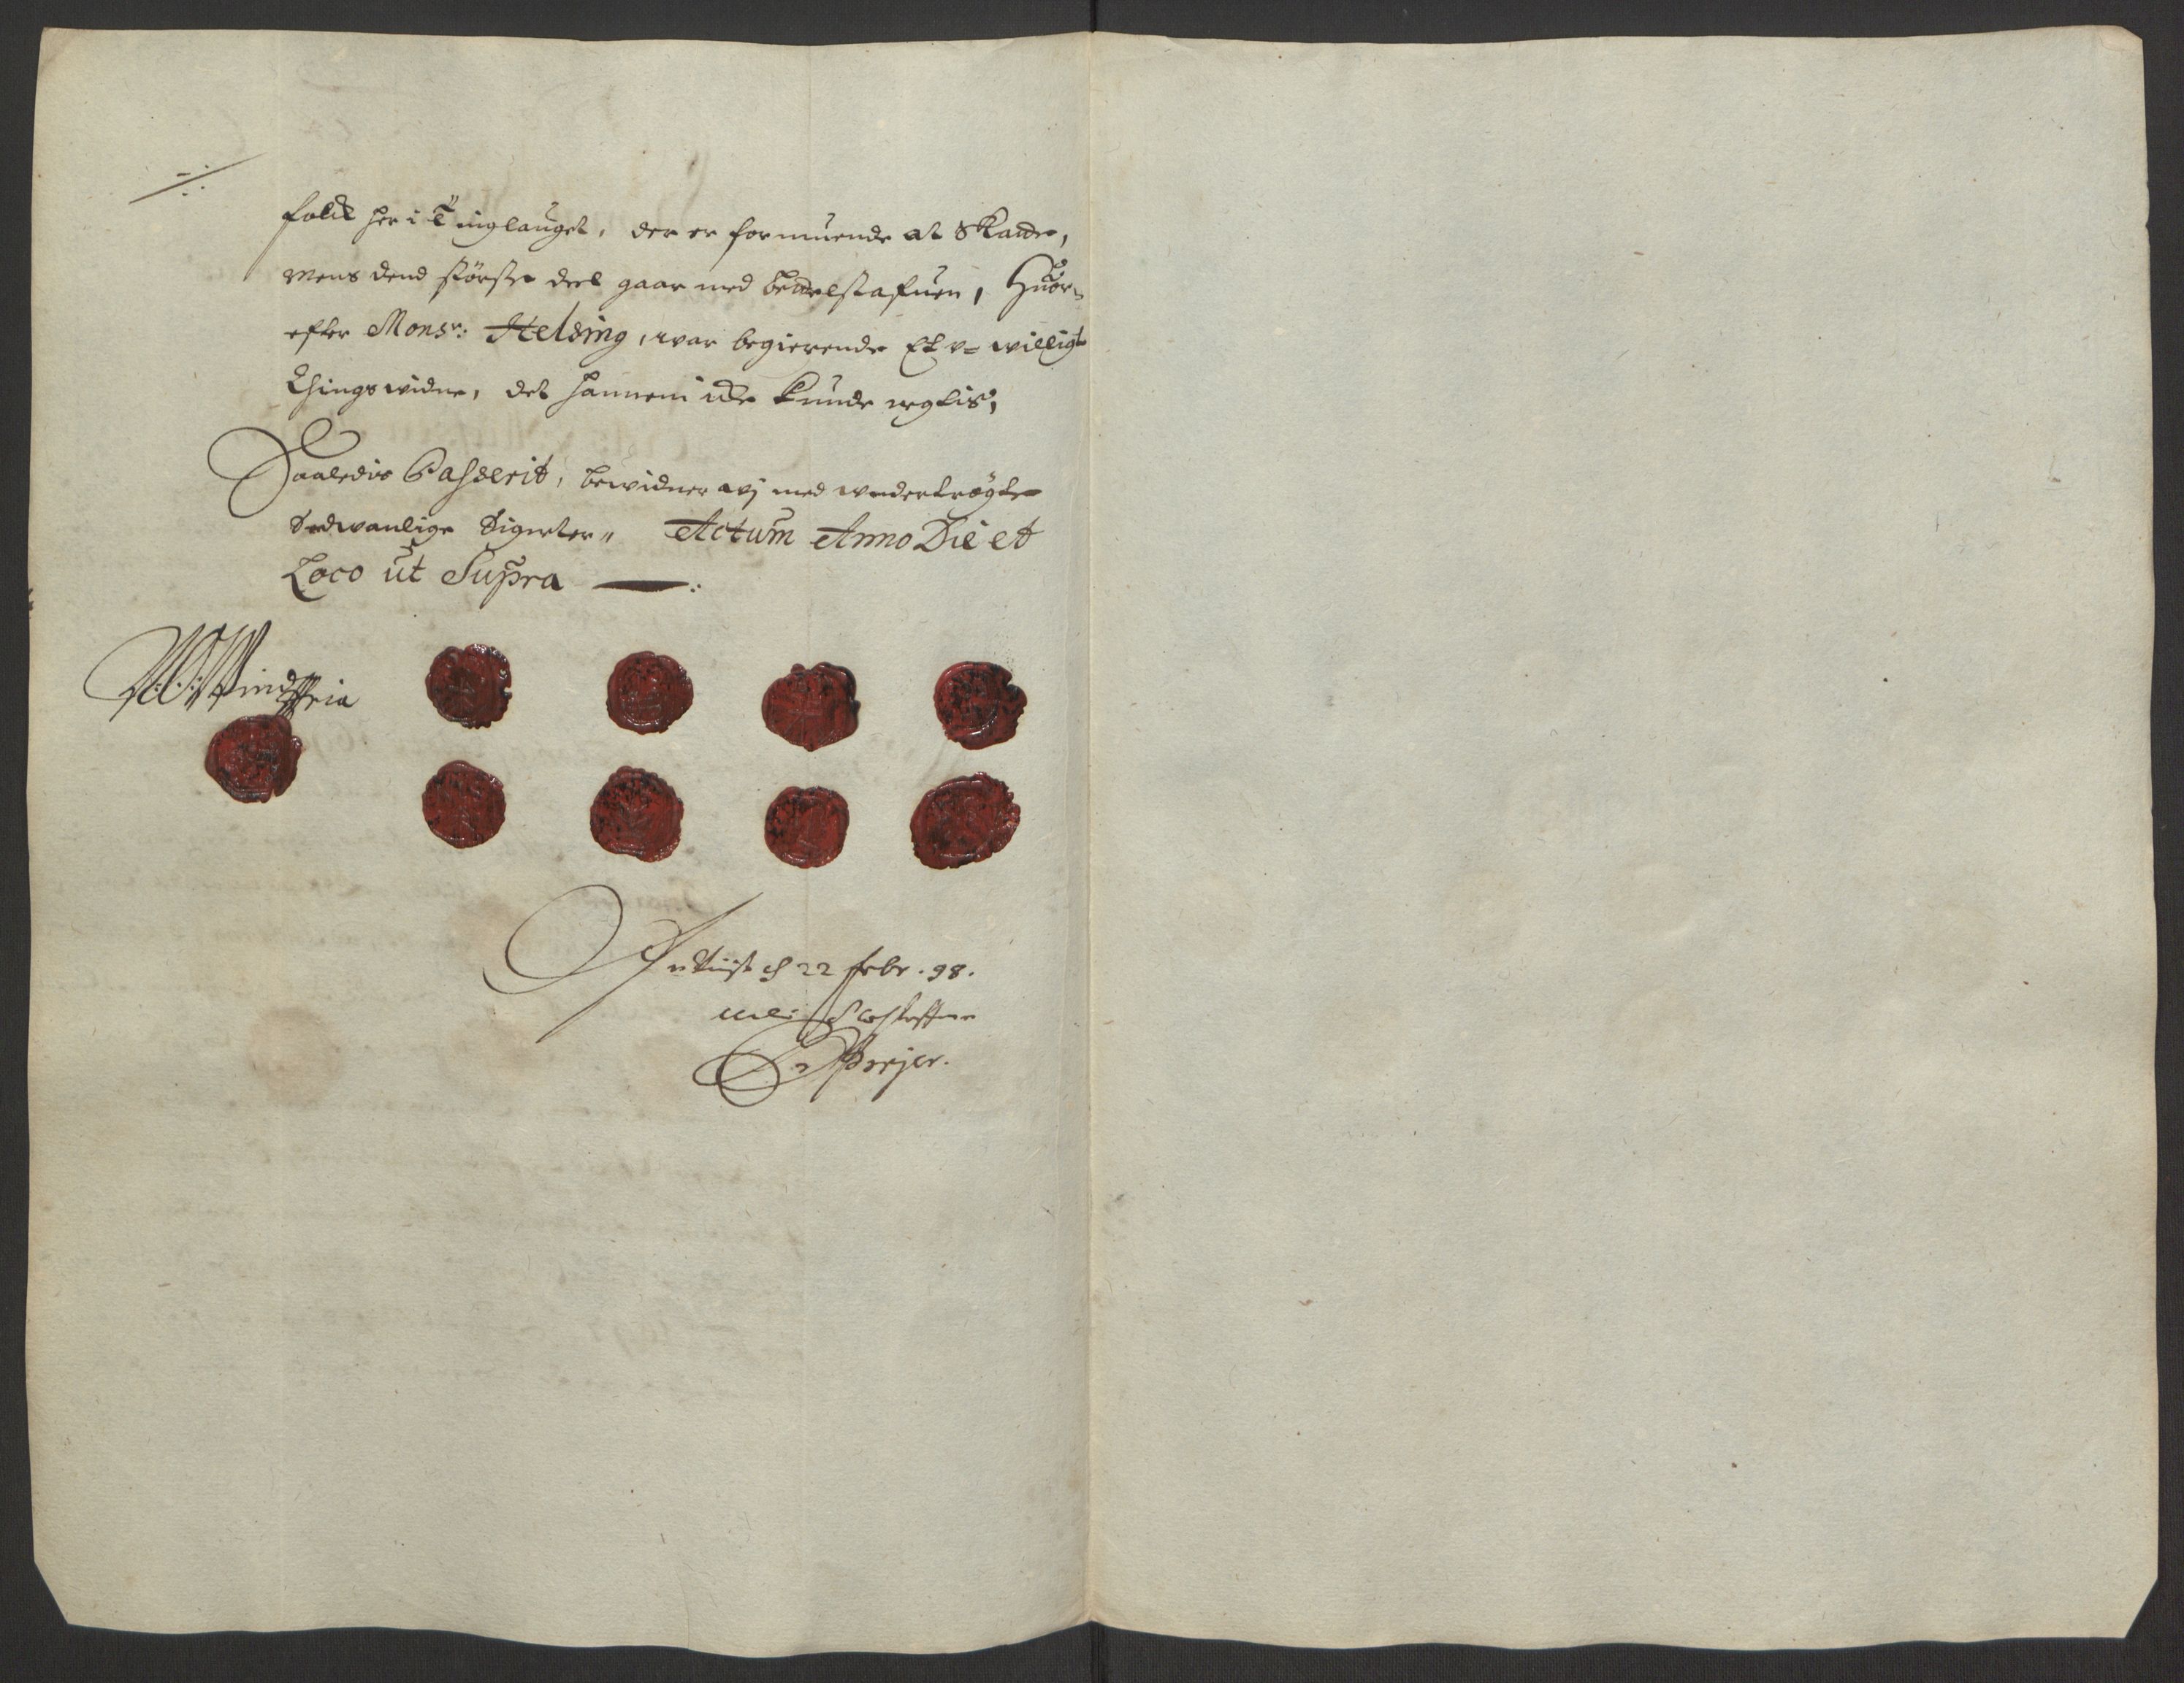 folck her i Tinglauget, der er formuende at Skatte,
Mens dend største deel gaar med bettelstafuen, Huor-
efter Monsr: Helsing, war begierende Et u-willigt
Thingswidne, det hannem icke kunde negtis,
Saaledis Passerit, bewidner wj med wndertrögte
Sedwanlige Signeter, Actum Anno Die et
Loco ut Supra
22 Febr. 98.